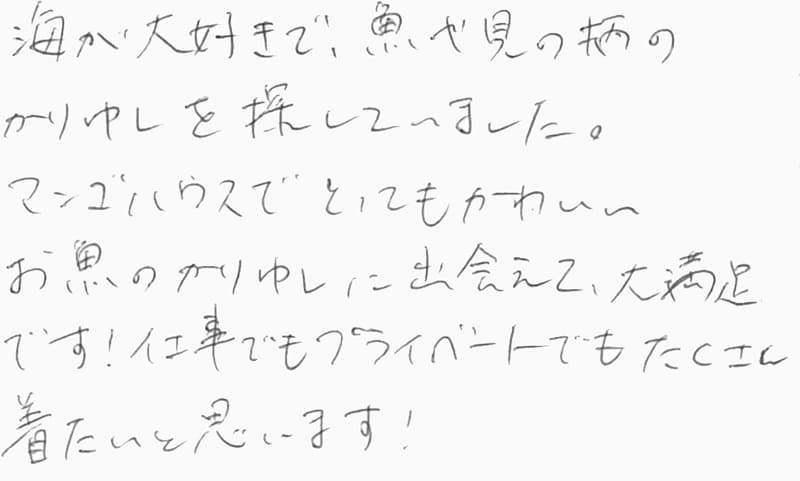 海が大好きで、魚や貝の柄の
かりゆしを探していました。
マンゴハウスでとってもかわいい
お魚のかりゆしに出会えて、大満足
です!仕事でもプライベートでもたくさん
着たいと思います!